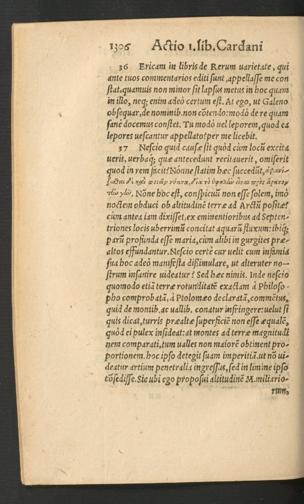 1306 Actio 1. lib. Cardani
36 Ericam in libris de Rerum varietate, qui
ante tuos commentarios editi sunt, appellasse me con
stat. quamuis non minor sit lapsus metus in hoc quam
in illo, neq; enim adeò certum est. At ego, ut Galeno
obsequar, de nominib. non cōtendo: modò de re quam
fanè docemus constet. Tu modò vel leporem, quod ea
lepores uescantur appellato: per me licebit.
37 Nescio quid causæ sit quòd cùm locū excita
uerit, verbaq́; quæ antecedunt recitauerit, omiserit
quod in rem facit? Nónne statim hæc succedūt,
Nōne hoc est, conspicuū non esse solem, imò
noctem obduci ob altitudinē terræ ad Arctū positæ?
cùm antea iam dixisset, ex eminentioribus ad Septen-
triones locis uberrimū concitat aquarū fluxum: ibiq́;
parū profunda esse maria, cùm alibi in gurgites præ-
altos effundantur. Nescio certè cur uelit cum infimia
sua hoc adeò manifesta dissimulare, ut alteruter no-
strum insanire uideatur? Sed hæc nimis. Inde nescio
quomodo etiā terræ rotunditatē exactam à Philoso-
pho comprobatā, à Ptolomæo declaratā, commētus,
quid de montib. ac uallib. conatur infringere: uelut si
quis dicat, turris præaltæ superficiē non esse æqualē,
quòd ei pulex insideat: at montes ad terræ magnitudi
nem comparati, tum ualles non maiorē obtinent pro-
portionem. hoc ipso detegit suam imperitiā. ut nō ui-
deatur artium penetralia ingressus, sed in limine ipso
cōsedisse. Sic ubi ego proposui altitudinē M. miliario-
rum,